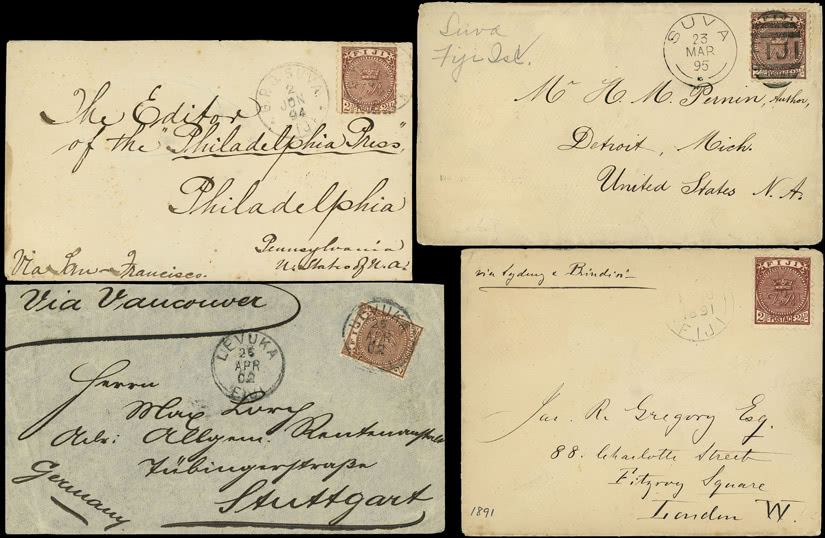 FIJI
2½ POSTAGE 2½
G.P.O. SUVA
2
JUN
94
FIJI
The Editor
of the "Philadelphia Press",
Philadelphia
Pennsylvania
U. States of N. a.
Via San-Francisco.
Suva
Fiji Isl.
SUVA
23
MAR
95
FIJI
FIJI
Mr H. M. Pernin, Author,
Detroit, Mich.
United States N. A.
Via Vancouver
LEVUKA
26
APR
02
FIJI
LEVUKA
26
02
Herrn
Max Lorch
Adr: Allgem. Rentenanstalt
Tübingerstraße
Stuttgart
Germany
via Sydney & Brindisi
1891
FIJI
FIJI
2½ POSTAGE 2½
Jas. R. Gregory Esq.
88. Charlotte Street
Fitzroy Square
London W.
1891